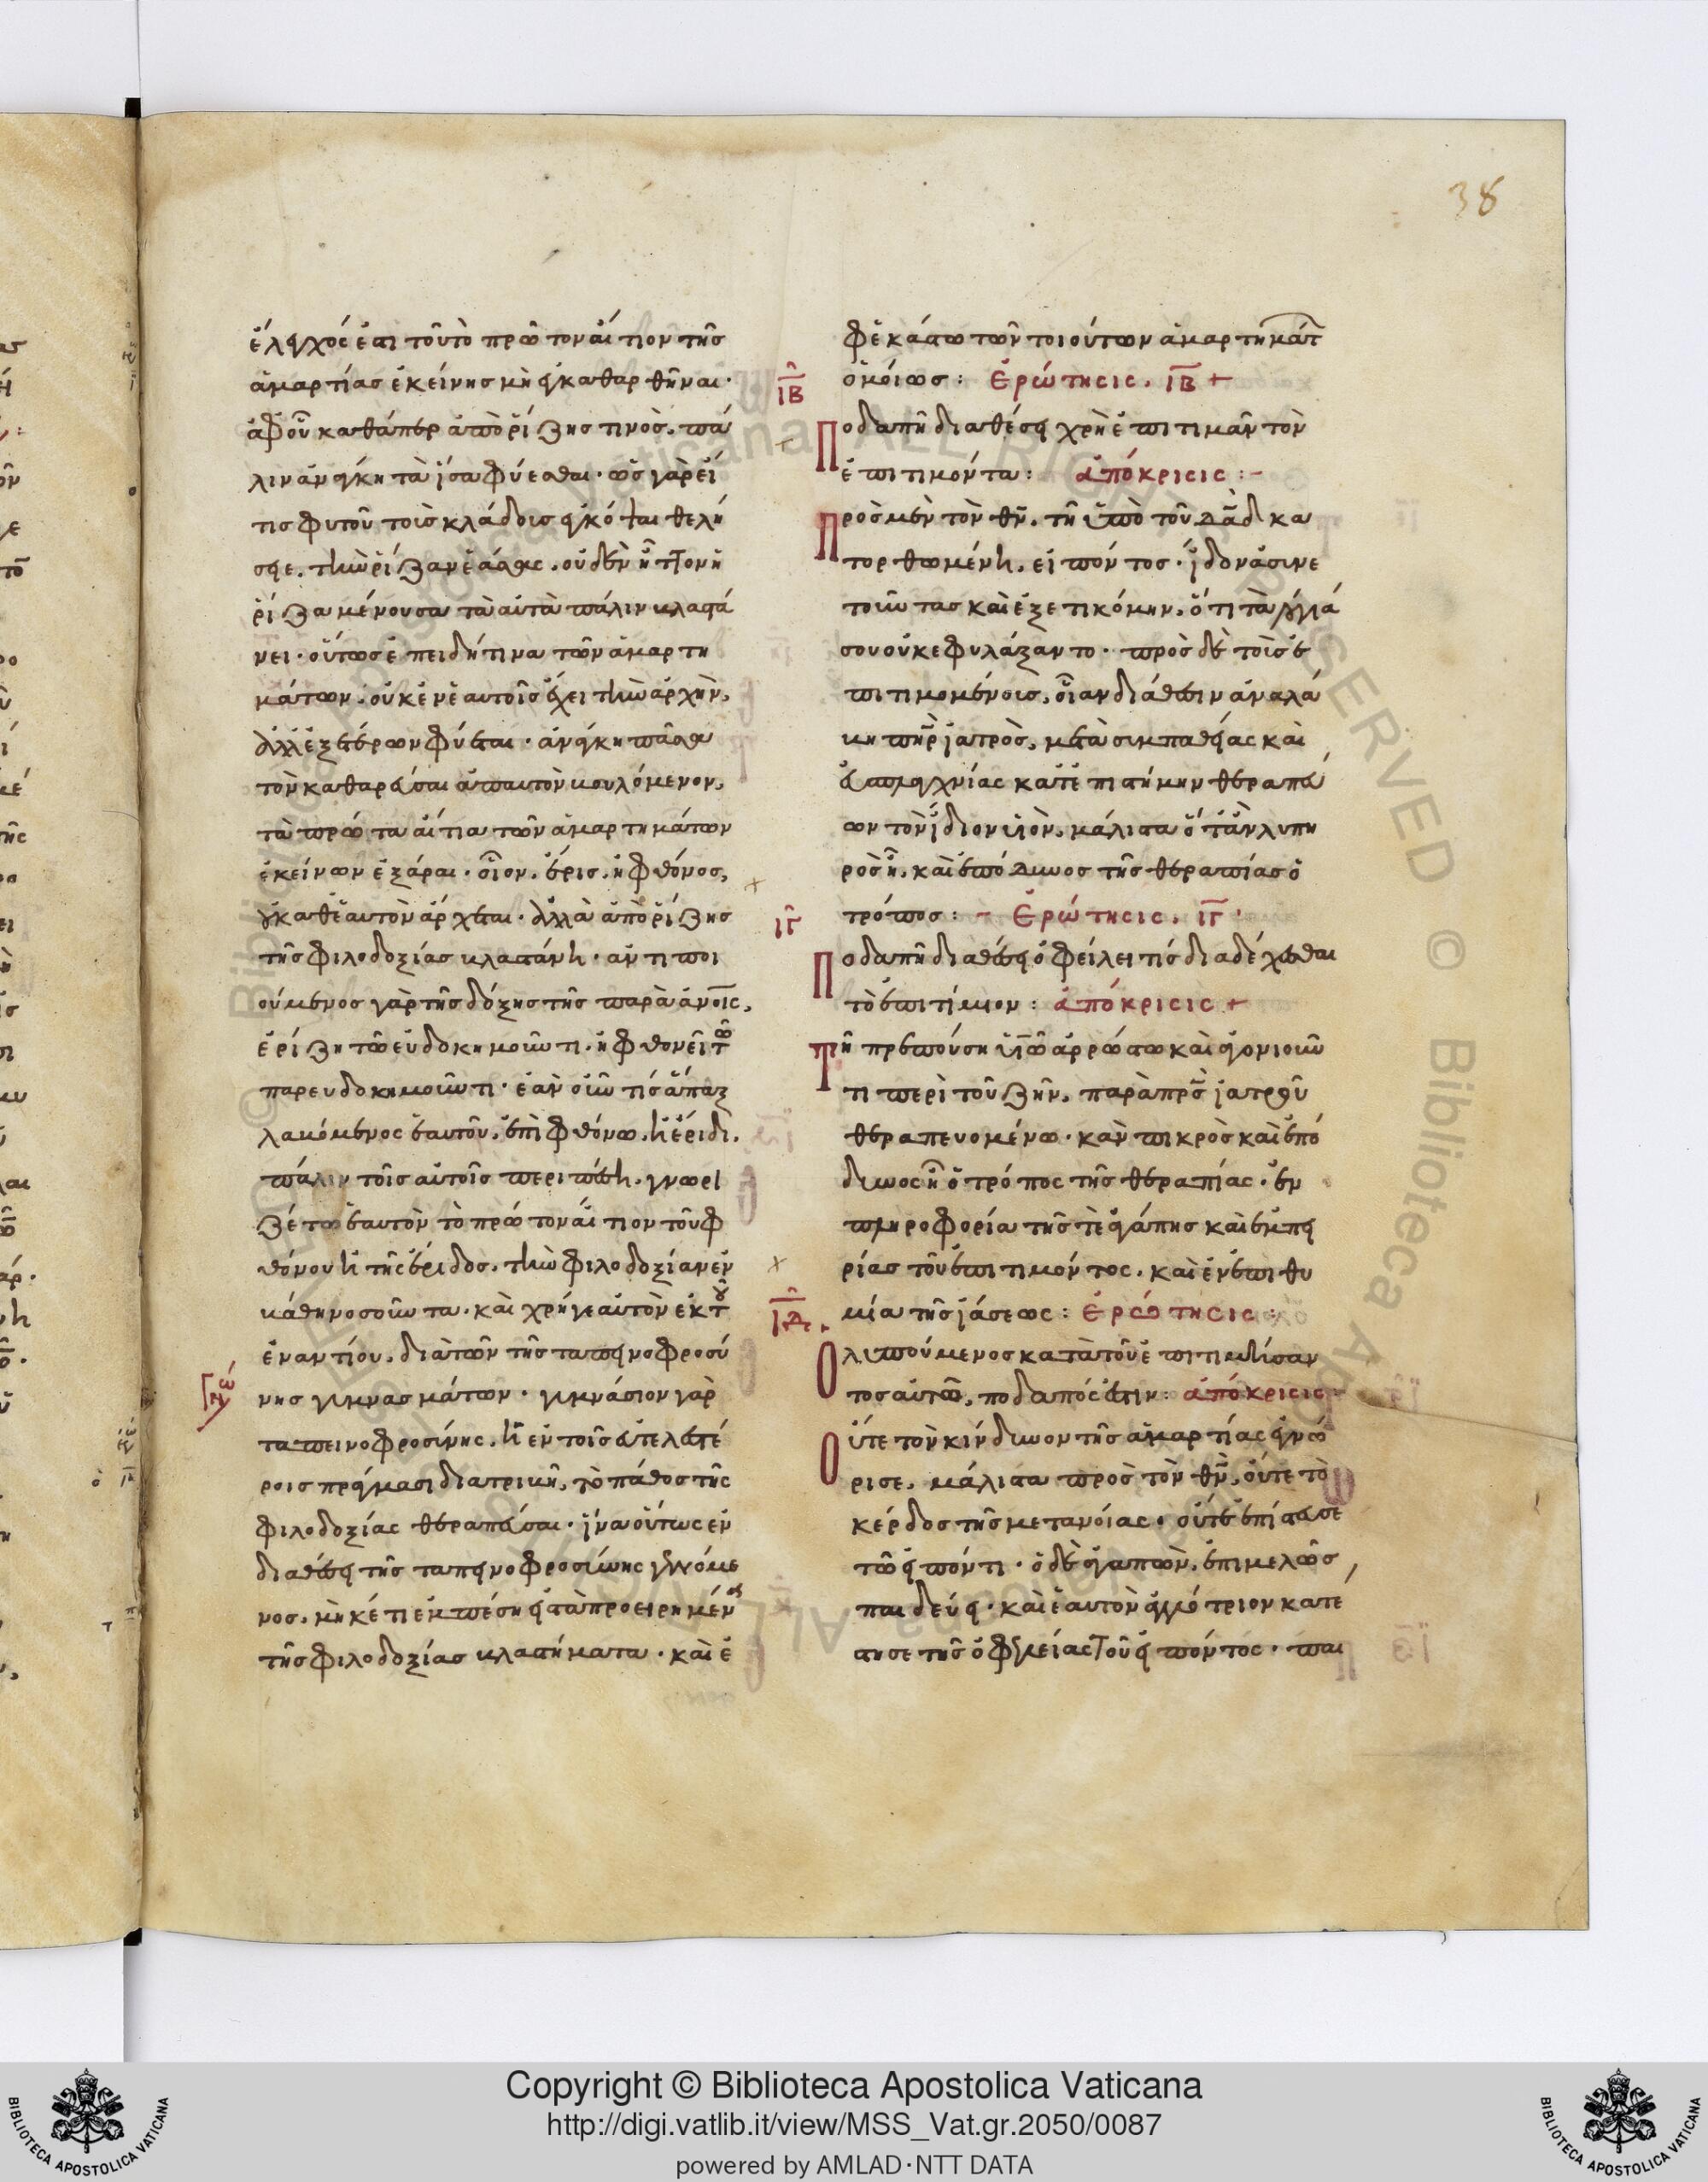 38
ἔλεγχός ἐστι τοῦ τὸ πρῶτον αἴτιον τῆς
ἁμαρτίας ἐκείνης μὴ ἐκκαθαρθῆναι·
ἀφ οὗ καθάπερ ἀπὸ ῥίζης τινὸς, πά
λιν ἀνάγκη τὰ ἴσα φύεσθαι· ὡς γὰρ εἴ
τις φυτοῦ τοὺς κλάδους ἐκκόψαι θελή
σειε, τὴν ῥίζαν ἐάσας, οὐδὲν ἧττον ἡ
ῥίζα μένουσα τὰ αὐτὰ πάλιν βλαστά
νει· οὕτως ἐπειδή τινα τῶν ἁμαρτη
μάτων, οὐκ ἐν ἑαυτοῖς ἔχει τὴν ἀρχὴν,
ἀλλ ἐξ ἑτέρων φύεται· ἀνάγκη πᾶσα
τὸν καθαρεῦσαι ἀπ αυτὸν βουλόμενον,
τὰ πρῶτα αἴτια τῶν ἁμαρτημάτων
ἐκείνων ἐξάραι· οἷον, ἔρις, ἢ φθόνος,
οὐ καθ ἑαυτὸν ἄρχεται· ἀλλὰ ἀπὸ ῥίζης
τῆς φιλοδοξίας βλαστάνει· ἀντιποι
ούμενος γὰρ τῆς δόξης τῆς παρὰ ἀνοις,
ἐρίζη τῶ εὐδοκημοῦντι, ἢ φθονεῖ τῶ
παρευδοκημοῦντι· ἐὰν οὖν τίς ἅπαξ
λαβόμενος ἑαυτοῦ, ἐπὶ φθόνω, ἢ ἔριδι,
πάλιν τοῖς αὐτοῖς περιπέση, γνωρι
ζέτω ἑαυτὸν τὸ πρῶτον αἴτιον τοῦ φ
θόνου ἢ τῆς ἔριδος, τὴν φιλοδοξίαν ἐν
βάθη νοσοῦντα· καὶ χρή γε αὐτὸν ἐκ τοῦ
ἐναντίου, διὰ τῶν τῆς ταπεινοφροσύ
νης γυμνασμάτων· γυμνάσιον γὰρ
ταπεινοφροσύνης, ἡ ἐν τοῖς εὐτελεστέ
ροις πράγμασι διατριβὴ, τὸ πάθος τῆς
φιλοδοξίας θεραπεῦσαι· ἵνα οὕτως ἐν
διαθέσει τῆς ταπεινοφροσύνης γενόμε
νος, μὴκέτι ἐμπέση εἰς τὰ προειρημένα
τῆς φιλοδοξίας βλαστήματα· καὶ ἐ
φ ἑκάστω τῶν τοιούτων ἁμαρτημάτ
ὁμοίως: Ἐρώτησις. ΙΒ +
ΙΒ
Ποδαπῆ διαθέσει χρὴ ἐπιτιμᾶν τὸν
ἐπιτιμόντα: ἀπόκρισις:-
Πρὸς μὲν τὸν θν, τῆ ὑπὸ τοῦ δαδ κα
τορθωμένη, εἰπόντος· ἴδον ἀσυνε
τοῦντας καὶ ἐξετικόμην, ὅτι τὰ λόγιά
σου οὐκ εφυλάξαντο· πρὸς δὲ τοὺς ἐ
πιτιμομένους, οἵαν διάθεσιν ἀναλά
βη πηρ ἰατρὸς, μετὰ συμπαθείας καὶ
εὐσπλαγχνίας κατ ἐπιστήμην θεραπεύ
ων τὸν ἴδιον υἱὸν, μάλιστα ὅτ ἂν λυπη
ρὸς ἦ, καὶ ἐπόδυνος τῆς θεραπίας ὁ
τρόπος:- Ἐρώτησις. ΙΓ·
ΙΓ
Ποδαπῆ διαθέσει ὀφείλει τίς διαδέχεσθαι
τὸ ἐπιτίμιον: ἀπόκρισις +
Τῆ πρεπούση υἱῶ ἀρρώστω καὶ ἀγονιοῦν
τι περὶ τοῦ ζῆν, παρὰ πρς ἰατροῦ
θεραπευομένω· κἂν πικρὸς καὶ ἐπό
δυνος ἦ ὁ τρόπος τῆς θεραπίας· ἐν
πληροφορία τῆς τε ἀγάπης καὶ ἐμπει
ρίας τοῦ ἐπιτιμόντος, καὶ ἐν ἐπιθυ
μία τῆς ἰάσεως: Ἐρώτησις:
ΙΔ
Ὁ λυπούμενος κατὰ τοῦ ἐπιτιμήσαν
τος αὐτῶ, ποδαπός ἐστιν: ἀπόκρισις
Οὔτε τὸν κίνδυνον τῆς ἁμαρτίας ἐγνώ
ρισε, μάλιστα πρὸς τὸν θν, οὔτε τὸ
κέρδος τῆς μετανοίας· οὔτε ἐπίστευσε
τῶ εἰπόντι· ὁ δὲ ἀγαπῶν, ἐπιμελῶς
παιδεύει· καὶ ἑαυτὸν ἀλλότριον κατέ
στησε τῆς ὀφελείας τοῦ εἰπόντος· παι
Copyright © Biblioteca Apostolica Vaticana
http://digi.vatlib.it/view/MSS_Vat.gr.2050/0087
powered by AMLAD·NTT DATA
BIBLIOTECA APOSTOLICA VATICANA
BIBLIOTECA APOSTOLICA VATICANA